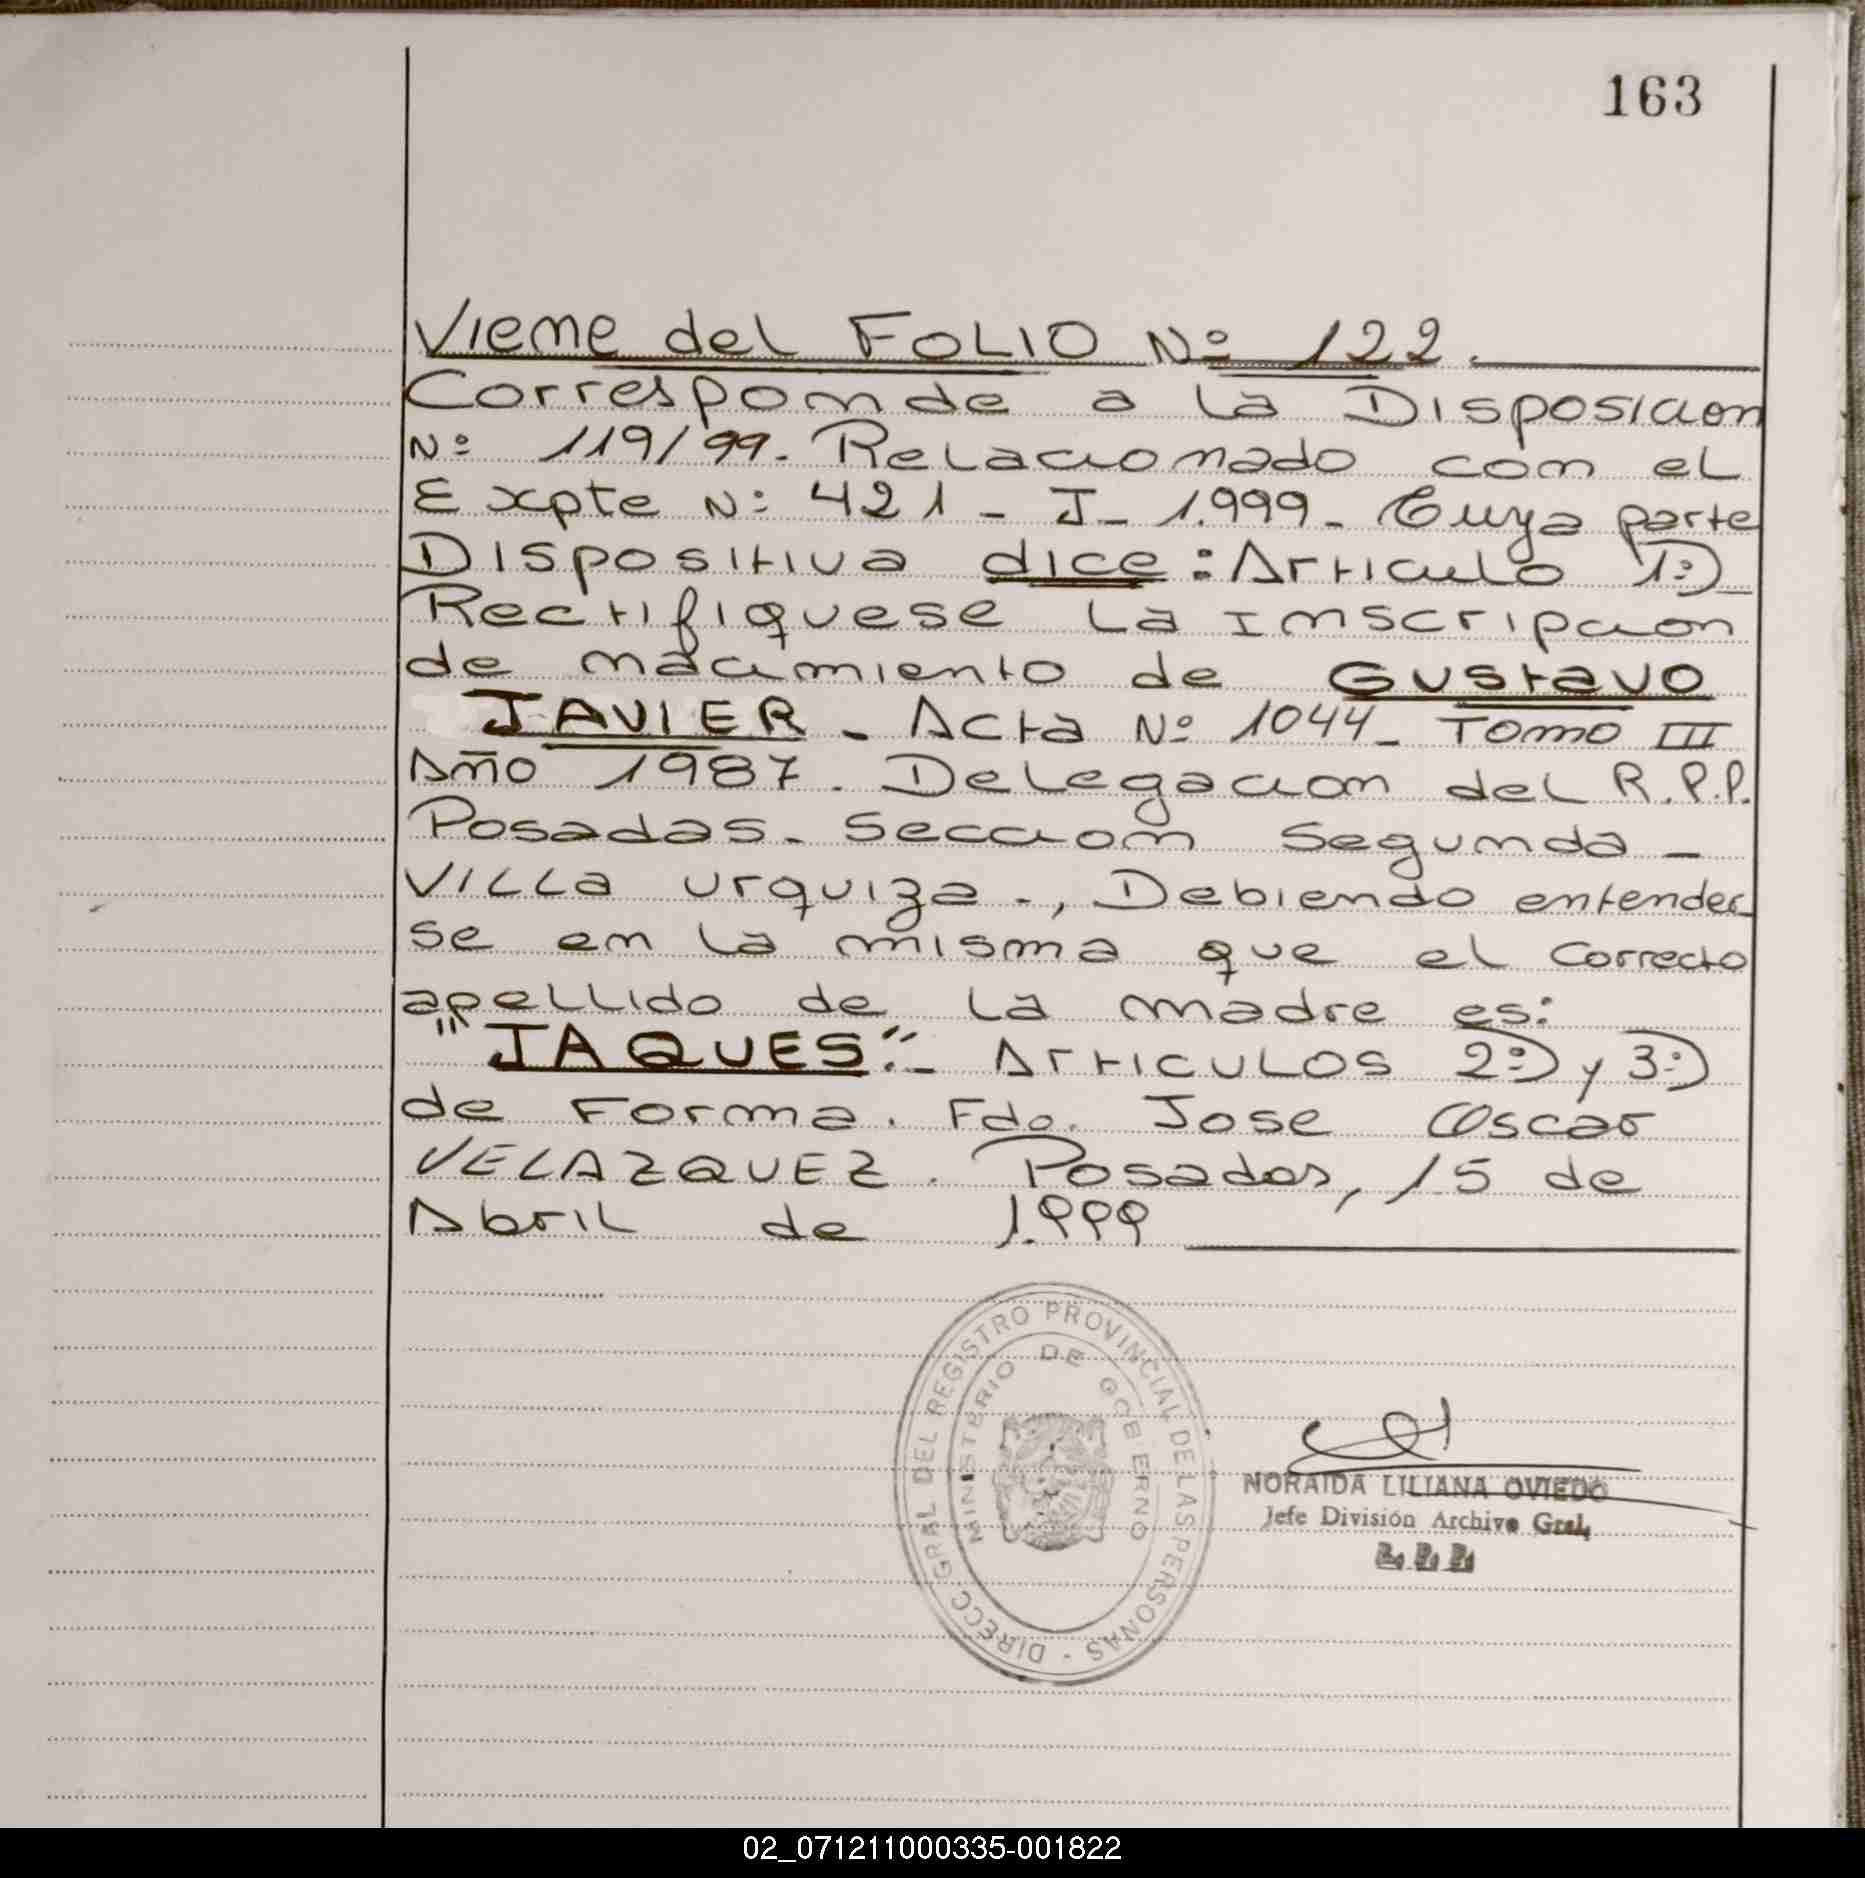 163
Viene del FOLIO Nº 122.
Corresponde a la Disposicion
Nº 119/99. Relacionado con el
Expte Nº 421 - J - 1.999 - Cuya parte
Dispositiva dice: Articulo 1º)
Rectifiquese la inscripcion
de nacimiento de Gustavo
JAVIER - Acta Nº 1044 - Tomo III
Año 1987. Delegacion del R.P.P.
Posadas - Seccion Segunda -
Villa urquiza -, Debiendo entender
se en la misma que el correcto
apellido de la madre es:
"JAQUES".- Articulos 2º) y 3º)
de Forma. Fdo. Jose Oscar
VELAZQUEZ. Posadas, 15 de
Abril de 1.999
DIRECC GRAL DEL REGISTRO PROVINCIAL DE LAS PERSONAS -
MINISTERIO DE GOBIERNO
NORAIDA LILIANA OVIEDO
Jefe División Archivo Gral.
02_071211000335-001822